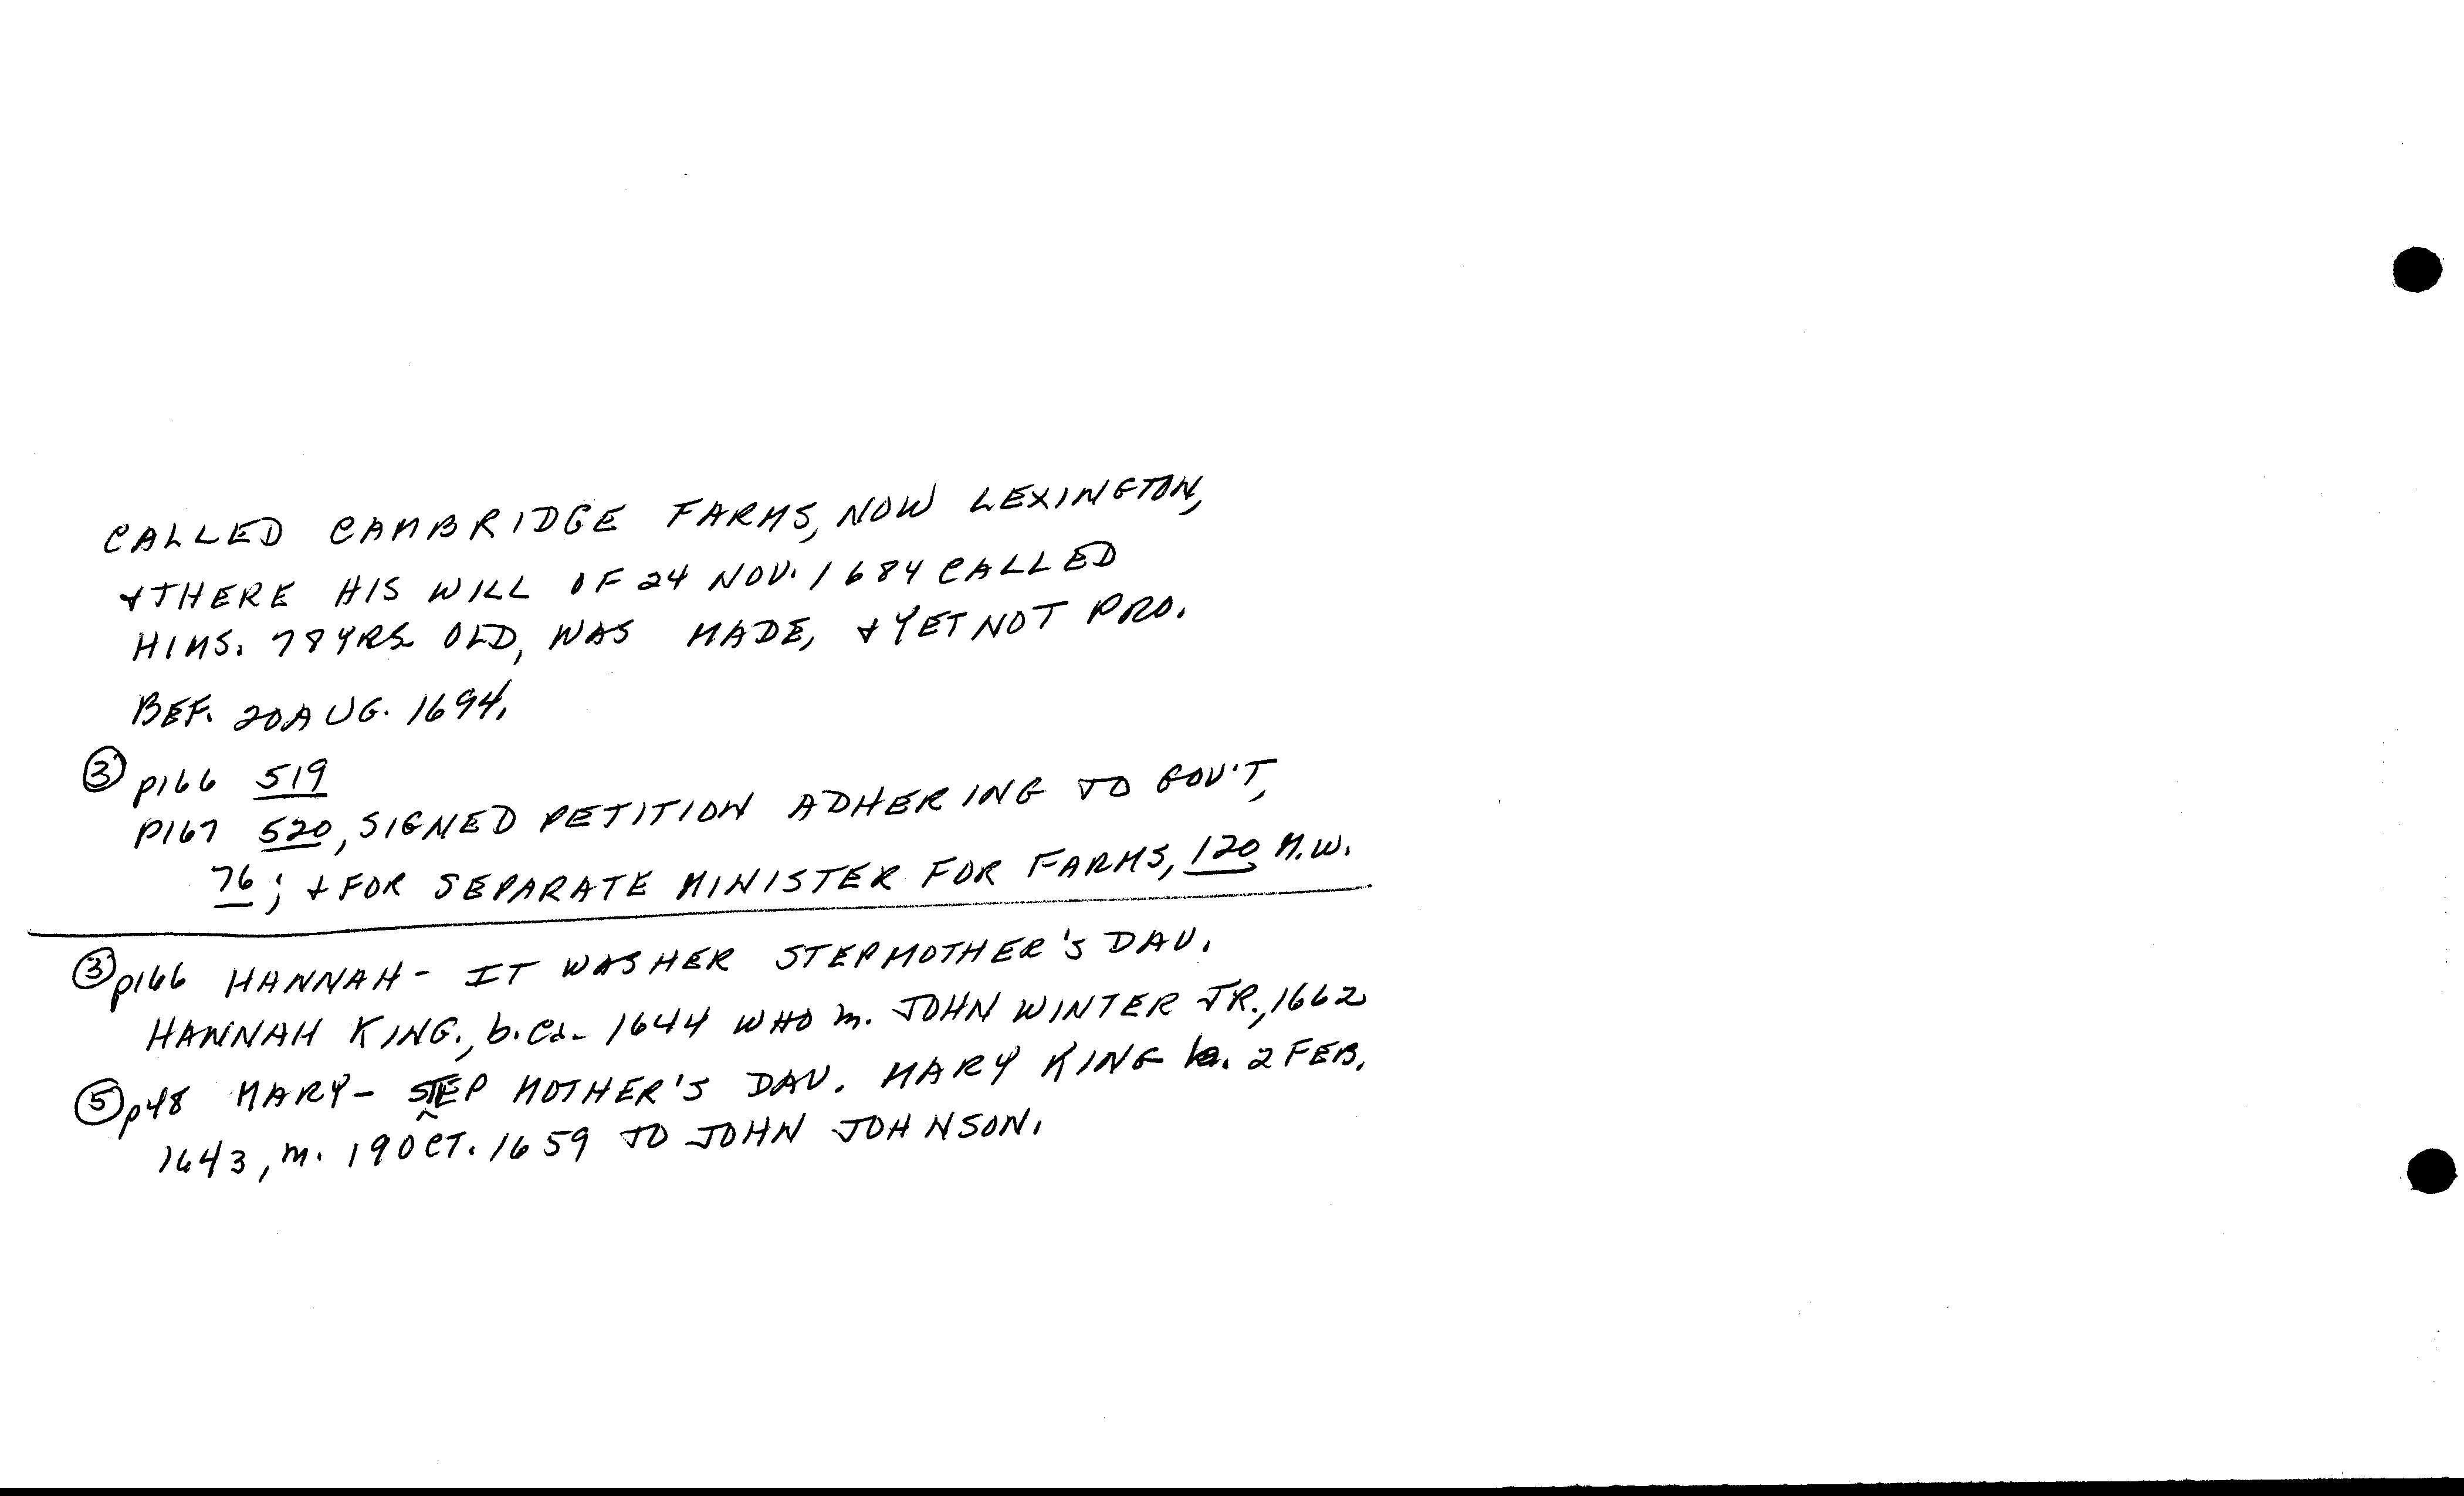 CALLED CAMBRIDGE FARMS, NOW LEXINGTON,
+ THERE HIS WILL OF 24 NOV. 1684 CALLED
HIMS. 78 YRS OLD, WAS MADE, + YET NOT PRO.
BEF. 20 AUG. 1694.
③ p166 519
P167 520, SIGNED PETITION ADHERING TO GOV'T,
76; + FOR SEPARATE MINISTER FOR FARMS, 120 M.W.
③ p166 HANNAH - IT WAS HER STEPMOTHER'S DAU.
HANNAH KING., b. ca. 1644 WHO m. JOHN WINTER JR., 1662
⑤ p48 MARY - STEP MOTHER'S DAU. MARY KING b. 2 FEB.
1643, m. 19 OCT. 1659 TO JOHN JOHNSON.